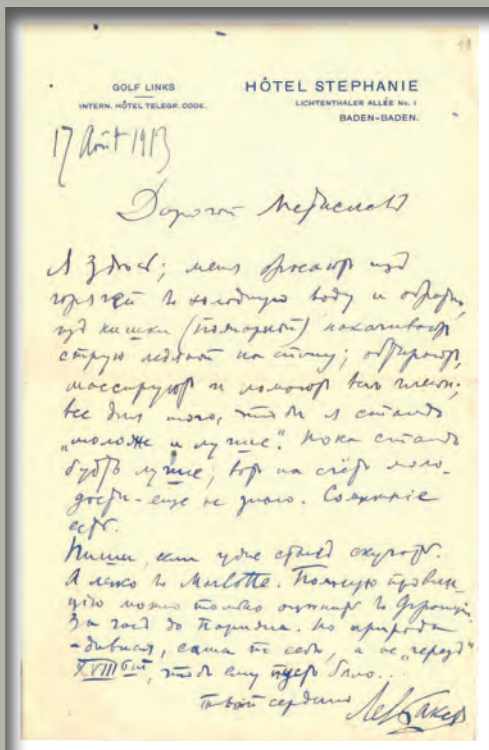 19
GOLF LINKS
INTERN. HÔTEL TELEGR. CODE.
HÔTEL STEPHANIE
LICHTENTHALER ALLÉE No. 1
BADEN-BADEN.
17 Août 1913
Дорогой Мстиславъ
Я здѣсь; меня бросаютъ изъ
горячей въ холодную воду и обратно,
изъ кишки (пожарной) накачиваютъ
струю ледяной на спину; обтираютъ,
массируютъ и ломаютъ всѣ члены;
все для того, чтобы я сталъ
„моложе и лучше“. Пока сталъ
будто лучше; вотъ на счетъ моло-
дости - еще не знаю. Сомнѣніе
есть.
Пиши, если
въ Marlotte. Полную провин-
цію можно только въ Франціи.
За часъ до Парижа. Но природа
- дивная, сама по себѣ, а не „черезъ“
XVIII чтобъ ему пусто было..
твой сердечно
Левъ Бакстъ